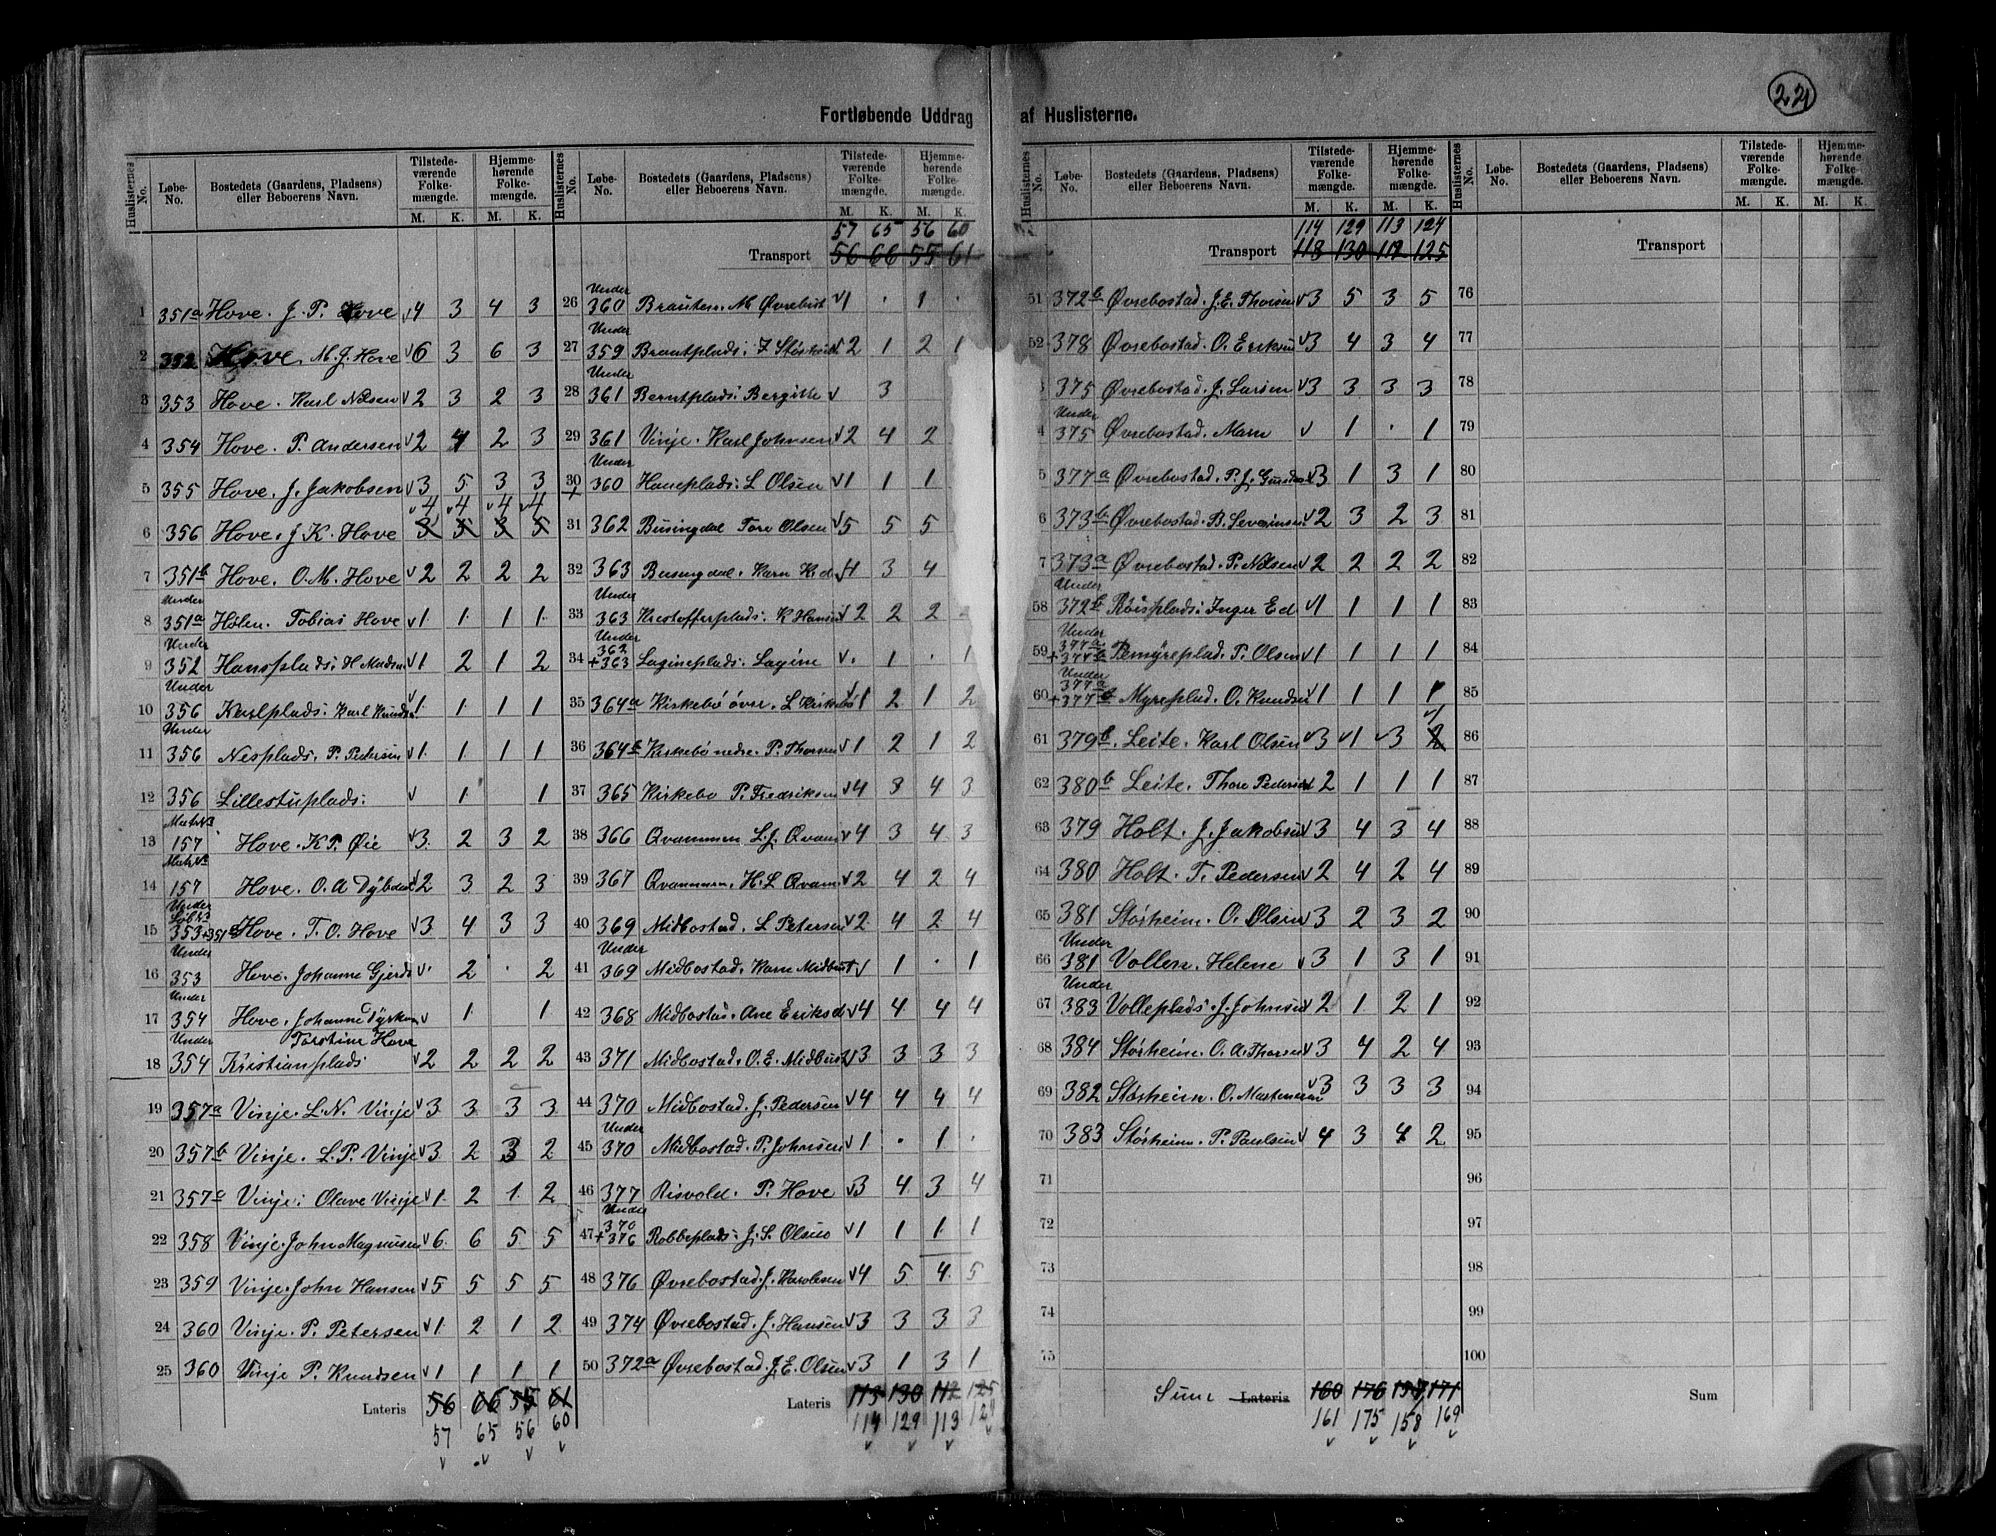 22
Fortløbende Uddrag af Huslisterne.
Huslisternes No. Løbe-No. Bostedets (Gaardens, Pladsens) eller Beboerens Navn. Tilstede-værende Folke-mængde. M. K. Hjemme-hørende Folke-mængde. M. K.
1 351a Hove. J. P. Hove 4 3 4 3
2 352 Hove. M. J. Hove 6 3 6 3
3 353 Hove. Karl Nilsen 2 3 2 3
4 354 Hove. P. Andersen 2 4 2 3
5 355 Hove. J. Jakobsen 3 5 3 3
4 4 4 4
6 356 Hove. J. K. Hove 3 5 3 5
7 351b Hove. O. M. Hove 2 2 2 2
8 Under 351a Hølen. Tobias Hove 1 1 1 1
9 Under 352 Hansplads: H. Madsen 1 2 1 2
10 Under 356 Karlplads: Karl Knudsen 1 1 1 1
11 Under 356 Nesplads. P. Pedersen 1 1 1 1
12 356 Lillestuplads: 1 1
13 Matr. No 157 Hove. K. P. Øie 3 2 3 2
14 Matr. No 157 Hove. O. A. Dybdal 2 3 2 3
15 Under Løb. No 353+351 Hove. T. O. Hove 3 4 3 3
16 Under 353 Hove. Johanne Gjerds · 2 · 2
17 Under 354 Hove. Johanne 1 1
Torstein Hove
18 Under 354 Kristianplads 2 2 2 2
19 357a Vinje. L. N. Vinje 3 3 3 3
20 357b Vinje. L. P. Vinje 3 2 3 2
21 357a Vinje: Olave Vinje 1 2 1 2
22 358 Vinje. John Magnusen 6 6 5 5
23 359 Vinje. John Hansen 5 5 5 5
24 360 Vinje. P. Petersen 1 2 1 2
25 360 Vinje P. Knudsen 1 1 1 1
Lateris 56 66 55 61
57 65 56 60
Huslisternes No. Løbe-No. Bostedets (Gaardens, Pladsens) eller Beboerens Navn. Tilstede-værende Folke-mængde. M. K. Hjemme-hørende Folke-mængde. M. K.
57 65 56 60
Transport 56 66 55 61
26 Under 360 Brauten. M. Øvrebust 1 · 1 ·
27 Under 359 Brautplads: 2 1 2 1
28 Under 361 Berntplads: Bergitte 3
29 361 Vinje. Karl Johnsen 2 4 2
30 Under 360 Haneplads: L. Olsen 1 1 1
31 362 Busingdal Tore Olsen 5 5 5
32 363 Busingdal. Karn K. d. 4 3 4
33 Under 363 Kristofferplads: K. Hansen 2 2 2
34 Under 362 +363 Lagineplads: Lagine · 1 · 1
35 364a Kirkebø øvre. L. Kirkebø 1 2 1 2
36 364b Kirkebø nedre. P. Thorsen 1 2 1 2
37 365 Kirkebø P. Fredriksen 4 3 4 3
38 366 Qvammen L. J. Qvam 4 3 4 3
39 367 Qvammen. H. L. Qvam 2 4 2 4
40 369 Midbostad. L. Petersen 2 4 2 4
41 Under 369 Midbostad. Karn Midbust 1 · 1
42 368 Midbostad. Ane Eriksd 4 4 4 4
43 371 Midbostad. O. E. Midbust 3 3 3 3
44 370 Midbostad. J. Pedersen 4 4 4 4
45 Under 370 Midbostad. P. Johnsen 1 · 1 ·
46 377 Risvold. P. Hove 3 4 3 4
47 Under 370 +376 Robbeplads: J. S. Olsen 1 1 1 1
48 376 Øvrebostad. J. Karolesen 4 5 4 5
49 374 Øvrebostad. J. Hansen 3 3 3 3
50 372a Øvrebostad. J. E. Olsen 3 1 3 1
Lateris 113 130 112 125
114 129 113 124
Huslisternes No. Løbe-No. Bostedets (Gaardens, Pladsens) eller Beboerens Navn. Tilstede-værende Folke-mængde. M. K. Hjemme-hørende Folke-mængde. M. K.
114 129 113 124
Transport 118 130 112 125
51 372b Øvrebostad. J. E. Thorsen 3 5 3 5
52 378 Øvrebostad. O. Eriksen 3 4 3 4
3 375 Øvrebostad. J. Larsen 3 3 3 3
4 Under 375 Øvrebostad. Marn 1 · 1
5 377a Øvrebostad. P. J. 3 1 3 1
6 373b Øvrebostad. B. Severinsen 2 3 2 3
7 373a Øvrebostad. P. Nilsen 2 2 2 2
58 Under 372b Røisplads: Inger Ed 1 1 1 1
59 Under 377a +377b P. Olsen 1 1 1 1
60 Under 377a +377b Myreplad. O. Knudsen 1 1 1 1
1
61 379b Leite. Karl Olsen 3 1 3 2
62 380b Leite. Thore Pedersen 2 1 1 1
63 379 Holt. J. Jakobsen 3 4 3 4
64 380 Holt. T. Pedersen 2 4 2 4
65 381 Størheim. O. Olsen 3 2 3 2
66 Under 381 Vollen. Helene 3 1 3 1
67 Under 383 Volleplads: J. Johnsen 2 1 2 1
68 384 Størheim. O. A. Thorsen 3 4 2 4
69 382 Størheim. O. Martenesen 3 3 3 3
70 383 Størheim. P. Paulsen 4 3 4 2
71
72
73
74
75
Sum Lateris 160 176 157 171
161 175 158 169
Huslisternes No. Løbe-No. Bostedets (Gaardens, Pladsens) eller Beboerens Navn. Tilstede-værende Folke-mængde. M. K. Hjemme-hørende Folke-mængde. M. K.
Transport
76
77
78
79
80
81
82
83
84
85
86
87
88
89
90
91
92
93
94
95
96
97
98
99
100
Sum